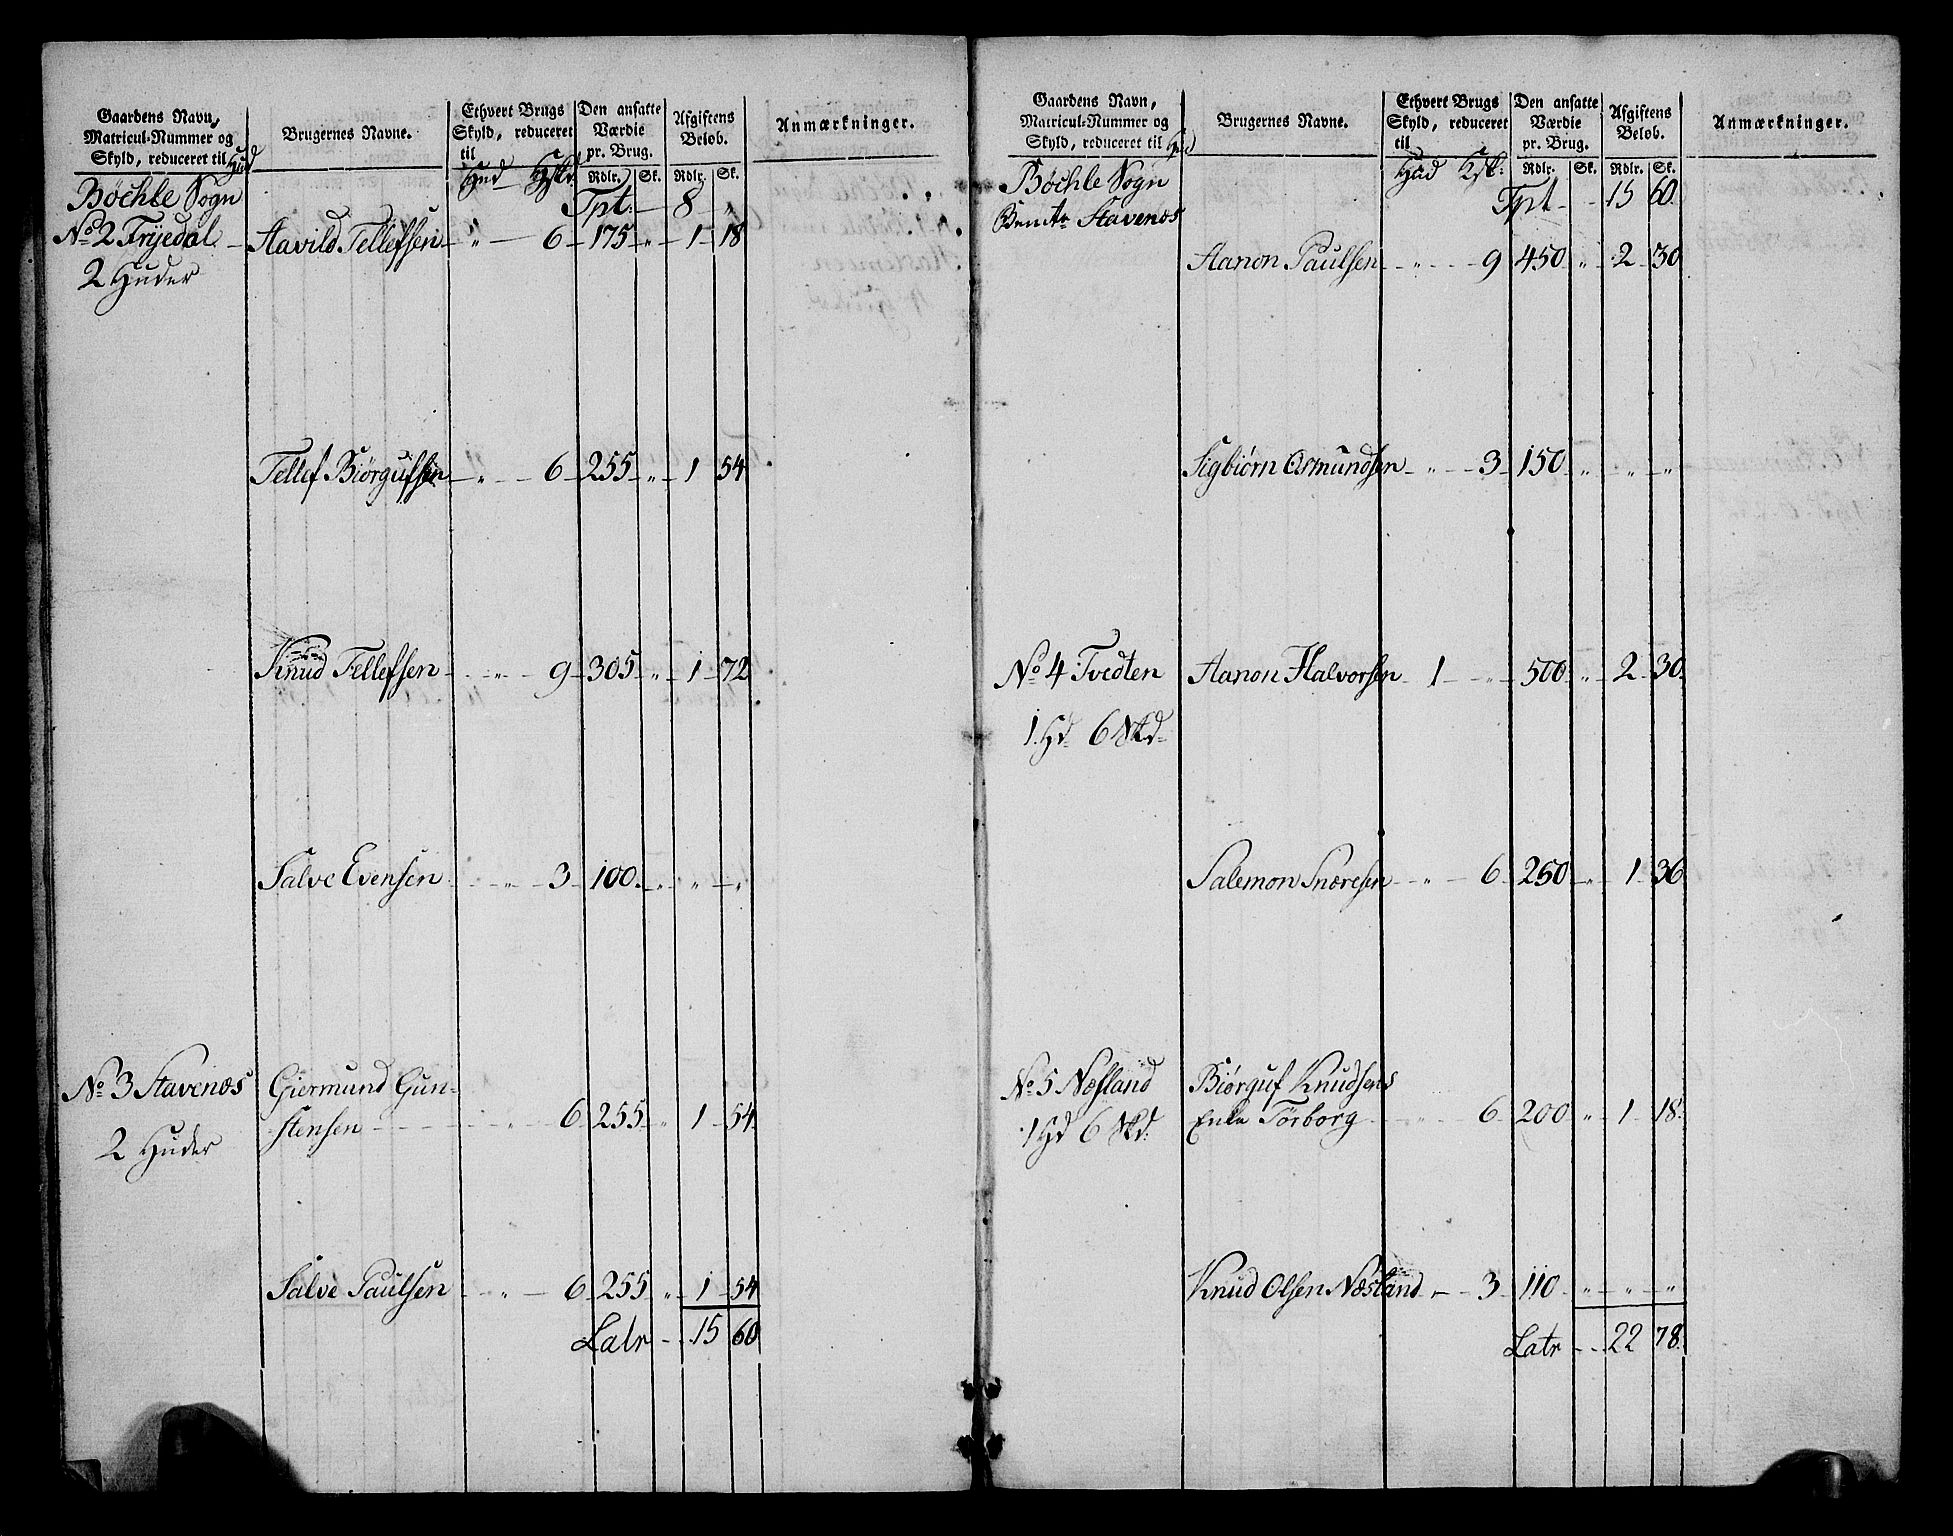 Gaardens Navn, Matricul-Nummer og Skyld, reduceret til Hud | Brugernes Navne. | Ethvert Brugs Skyld, reduceret til Hud | Den ansatte Værdie pr. Brug. Rdlr. Sk. | Afgiftens Beløb. Rdlr. Sk. | Anmærkninger.
Bøchle Sogn Tpt. — 8 „
No 2 Tryedal — Aavild Tellefsen — „ — 6 — 175 — „ — 1 — 18
2 Huder
Tellef Biørgufsen — „ — 6 — 255 — „ — 1 — 54
Knud Tellefsen — „ — 9 — 305 — „ — 1 — 72
Salve Evensen — „ — 3 — 100 — „ — „ — „
No 3 Stavenæs Giermund Gun-
stensen — „ — 6 — 255 — „ — 1 — 54
2 Huder
Salve Paulsen — „ — 6 — 255 — „ — 1 — 54
Latr — 15 60
Gaardens Navn, Matricul-Nummer og Skyld, reduceret til | Brugernes Navne. | Ethvert Brugs Skyld, reduceret til Hud | Den ansatte Værdie pr. Brug. Rdlr. Sk. | Afgiftens Beløb. Rdlr. Sk. | Anmærkninger.
Bøchle Sogn Tpt — 15 60
Stavenæs
Aanon Paulsen — „ — 9 450 „ 2 30
Sigbiørn Osmundsen — „ — 3 — 150 „ „ „
No 4 Tvedten Aanon Halvorsen — 1 — „ — 500 „ 2 30
1 Hd 6 Skd
Salemon Snæresen — „ — 6 250 „ 1 36
No 5 Næfland Biørguf Knudsens
1 Hd 6 Skd. Enke Torborg — „ — 6 200 „ 1 18
Knud Olsen Næsland „ — 3 — 110 „ „ „
Latr — 22 78